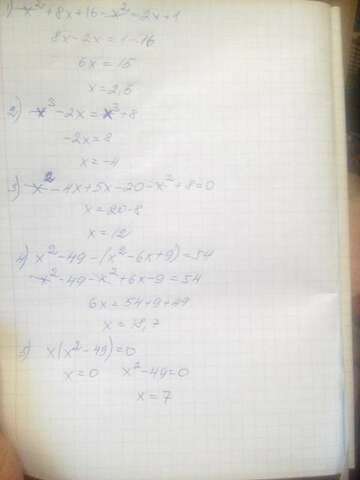 1) x² + 8x + 16 - x² - 2x + 1
8x - 2x = 1 - 16
6x = 15
x = 2,5
2) x³ - 2x = x³ + 8
-2x = 8
x = -4
3) x² - 4x + 5x - 20 - x² + 8 = 0
x = 20 - 8
x = 12
4) x² - 49 - (x² - 6x + 9) = 54
x² - 49 - x² + 6x - 9 = 54
6x = 54 + 9 + 49
x = 18,7
5) x(x² - 49) = 0
x = 0 x² - 49 = 0
x = 7